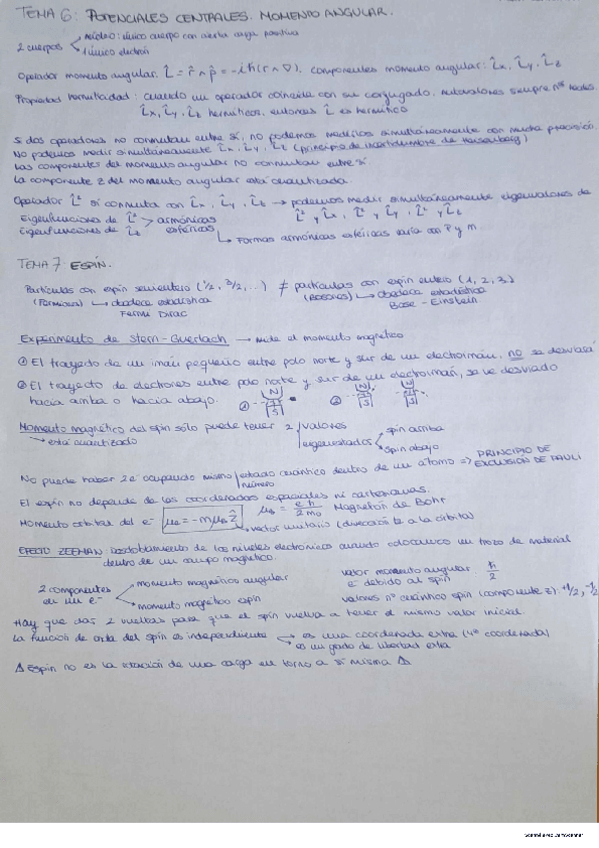 TEMA 6: POTENCIALES CENTRALES. MOMENTO ANGULAR.
2 cuerpos < núcleo: único cuerpo con cierta carga positiva
1 único electrón
Operador momento angular, L̂ = r̂ ∧ p̂ = -iħ(r ∧ ∇), componentes momento angular: L̂x, L̂y, L̂z
Propiedad hermiticidad: cuando un operador coincide con su conjugado, autovalores siempre nºs reales.
L̂x, L̂y, L̂z hermíticos, entonces L̂ es hermítico
Si dos operadores no conmutan entre sí, no podemos medirlos simultáneamente con mucha precisión.
No podemos medir simultáneamente L̂x, L̂y, L̂z (principio de incertidumbre de Heisenberg)
Las componentes del momento angular no conmutan entre sí
La componente z del momento angular está cuantizada.
Operador L̂² sí conmuta con L̂x, L̂y, L̂z → podemos medir simultáneamente eigenvalores de
L̂² y L̂x, L̂² y L̂y, L̂² y L̂z
Eigenfunciones de L̂² > armónicos
Eigenfunciones de L̂z esféricos
↳ Formas armónicas esféricas varía con l y m.
TEMA 7 ESPÍN.
Partículas con espín semientero (1/2, 3/2, ...) ≠ partículas con espín entero (1, 2, 3)
(Fermiones) ↳ obedece estadística (Bosones) ↳ obedece estadística
Fermi Dirac Bose - Einstein
Experimento de Stern-Guerlach → mide el momento magnético
① El trayecto de un imán pequeño entre polo norte y sur de un electroimán, no se desviará
② El trayecto de electrones entre polo norte y sur de un electroimán, se ve desviado
hacia arriba o hacia abajo. ① N S ② N S N S
Momento magnético del spin sólo puede tener 2 / valores
↳ está cuantizado eigenestados < spin arriba
spin abajo
No puede haber 2e⁻ ocupando mismo / estado cuántico dentro de un átomo => PRINCIPIO DE
número EXCLUSIÓN DE PAULI
El espín no depende de las coordenadas espaciales ni cartesianas.
Momento orbital del e⁻ μe = -mμB ẑ μB = eħ / 2m₀ Magnetón de Bohr
↳ vector unitario (dirección ⊥ a la órbita)
EFECTO ZEEMAN: desdoblamiento de los niveles electrónicos cuando colocamos un trozo de material
dentro de un campo magnético.
2 componentes momento magnético angular valor momento angular ħ/2
en un e⁻ e⁻ debido al spin
momento magnético espín valores nº cuántico spin (componente z): +1/2, -1/2
Hay que dar 2 vueltas para que el spin vuelva a tener el mismo valor inicial.
La función de onda del spin es independiente < es una coordenada extra (4ª coordenada)
es un grado de libertad extra
⚠ Espín no es la rotación de una carga en torno a sí misma ⚠